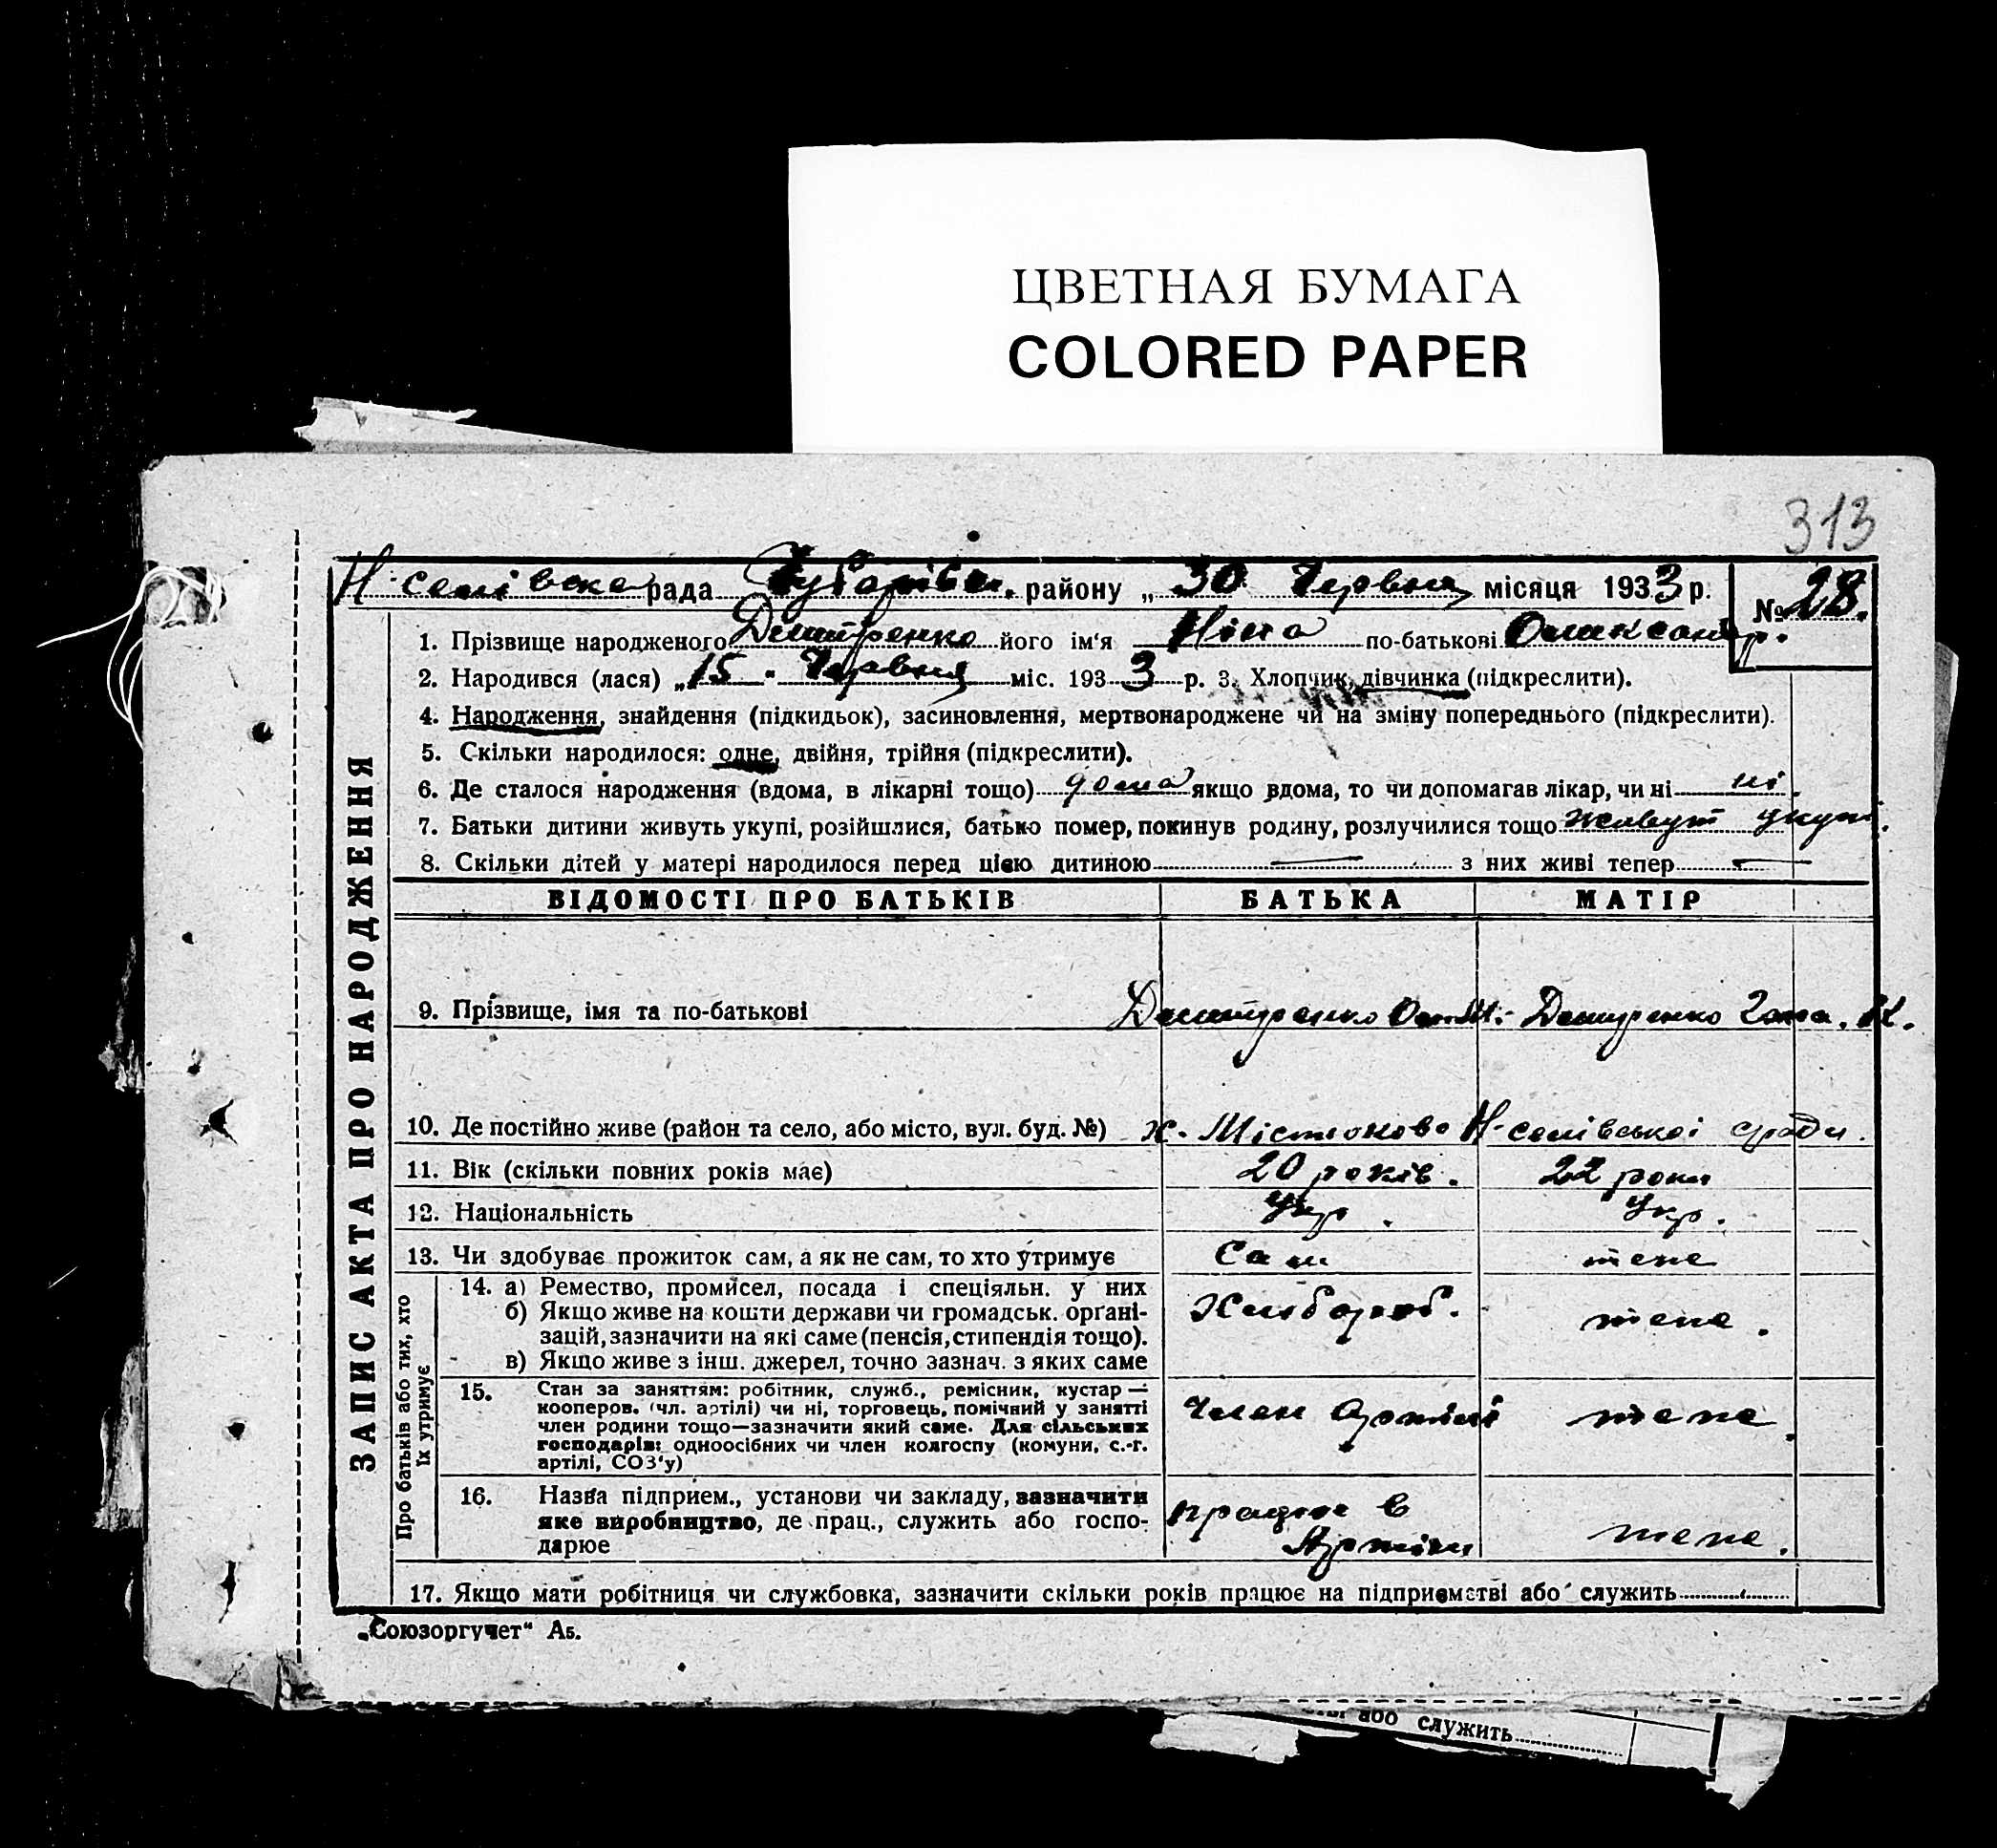 ЦВЕТНАЯ БУМАГА
COLORED PAPER
313
Н-селівська рада району „ 30 Червня місяця 1933 р. № 28.
1. Прізвище народженого Дмитренко його ім‘я Ніна по-батькові Олександр.
2. Народився (лася) „15 Червня міс. 1933 р. 3. Хлопчик, дівчинка (підкреслити).
4. Народження, знайдення (підкидьок), засиновлення, мертвонароджене чи на зміну попереднього (підкреслити).
5. Скільки народилося: одне, двійня, трійня (підкреслити).
6. Де сталося народження (вдома, в лікарні тощо) дома якщо вдома, то чи допомагав лікар, чи ні ні.
7. Батьки дитини живуть укупі, розійшлися, батько помер, покинув родину, розлучилися тощо живут укупі.
8. Скільки дітей у матері народилося перед цією дитиною — з них живі тепер —
ВІДОМОСТІ ПРО БАТЬКІВ БАТЬКА МАТІР
9. Прізвище, імя та по-батькові Дмитренко Дмитренко
10. Де постійно живе (район та село, або місто, вул. буд. №) х. Н-селівської ради.
11. Вік (скільки повних років має) 20 років. 22 роки
12. Національність Укр. Укр.
13. Чи здобуває прожиток сам, а як не сам, то хто утримує Сам теж
14. а) Ремество, промисел, посада і спеціяльн. у них
б) Якщо живе на кошти держави чи громадськ. органі-
зацій, зазначити на які саме (пенсія, стипендія тощо).
в) Якщо живе з інш. джерел, точно зазнач. з яких саме
Хлібороб. теж.
15. Стан за заняттям: робітник, служб., ремісник, кустар —
кооперов. (чл. артілі) чи ні, торговець, помічний у занятті
член родини тощо—зазначити який саме. Для сільських
господарів: одноосібних чи член колгоспу (комуни, с.-г.
артілі, СОЗ‘у)
Член Артілі теж.
16. Назва підприєм., установи чи закладу, зазначити
яке виробництво, де прац., служить або госпо-
дарює
працює в
Артілі теж.
17. Якщо мати робітниця чи службовка, зазначити скільки років працює на підприємстві або служить
ЗАПИС АКТА ПРО НАРОДЖЕННЯ
Про батьків або тих, хто
їх утримує
„Союзоргучет“ А5.
або служить